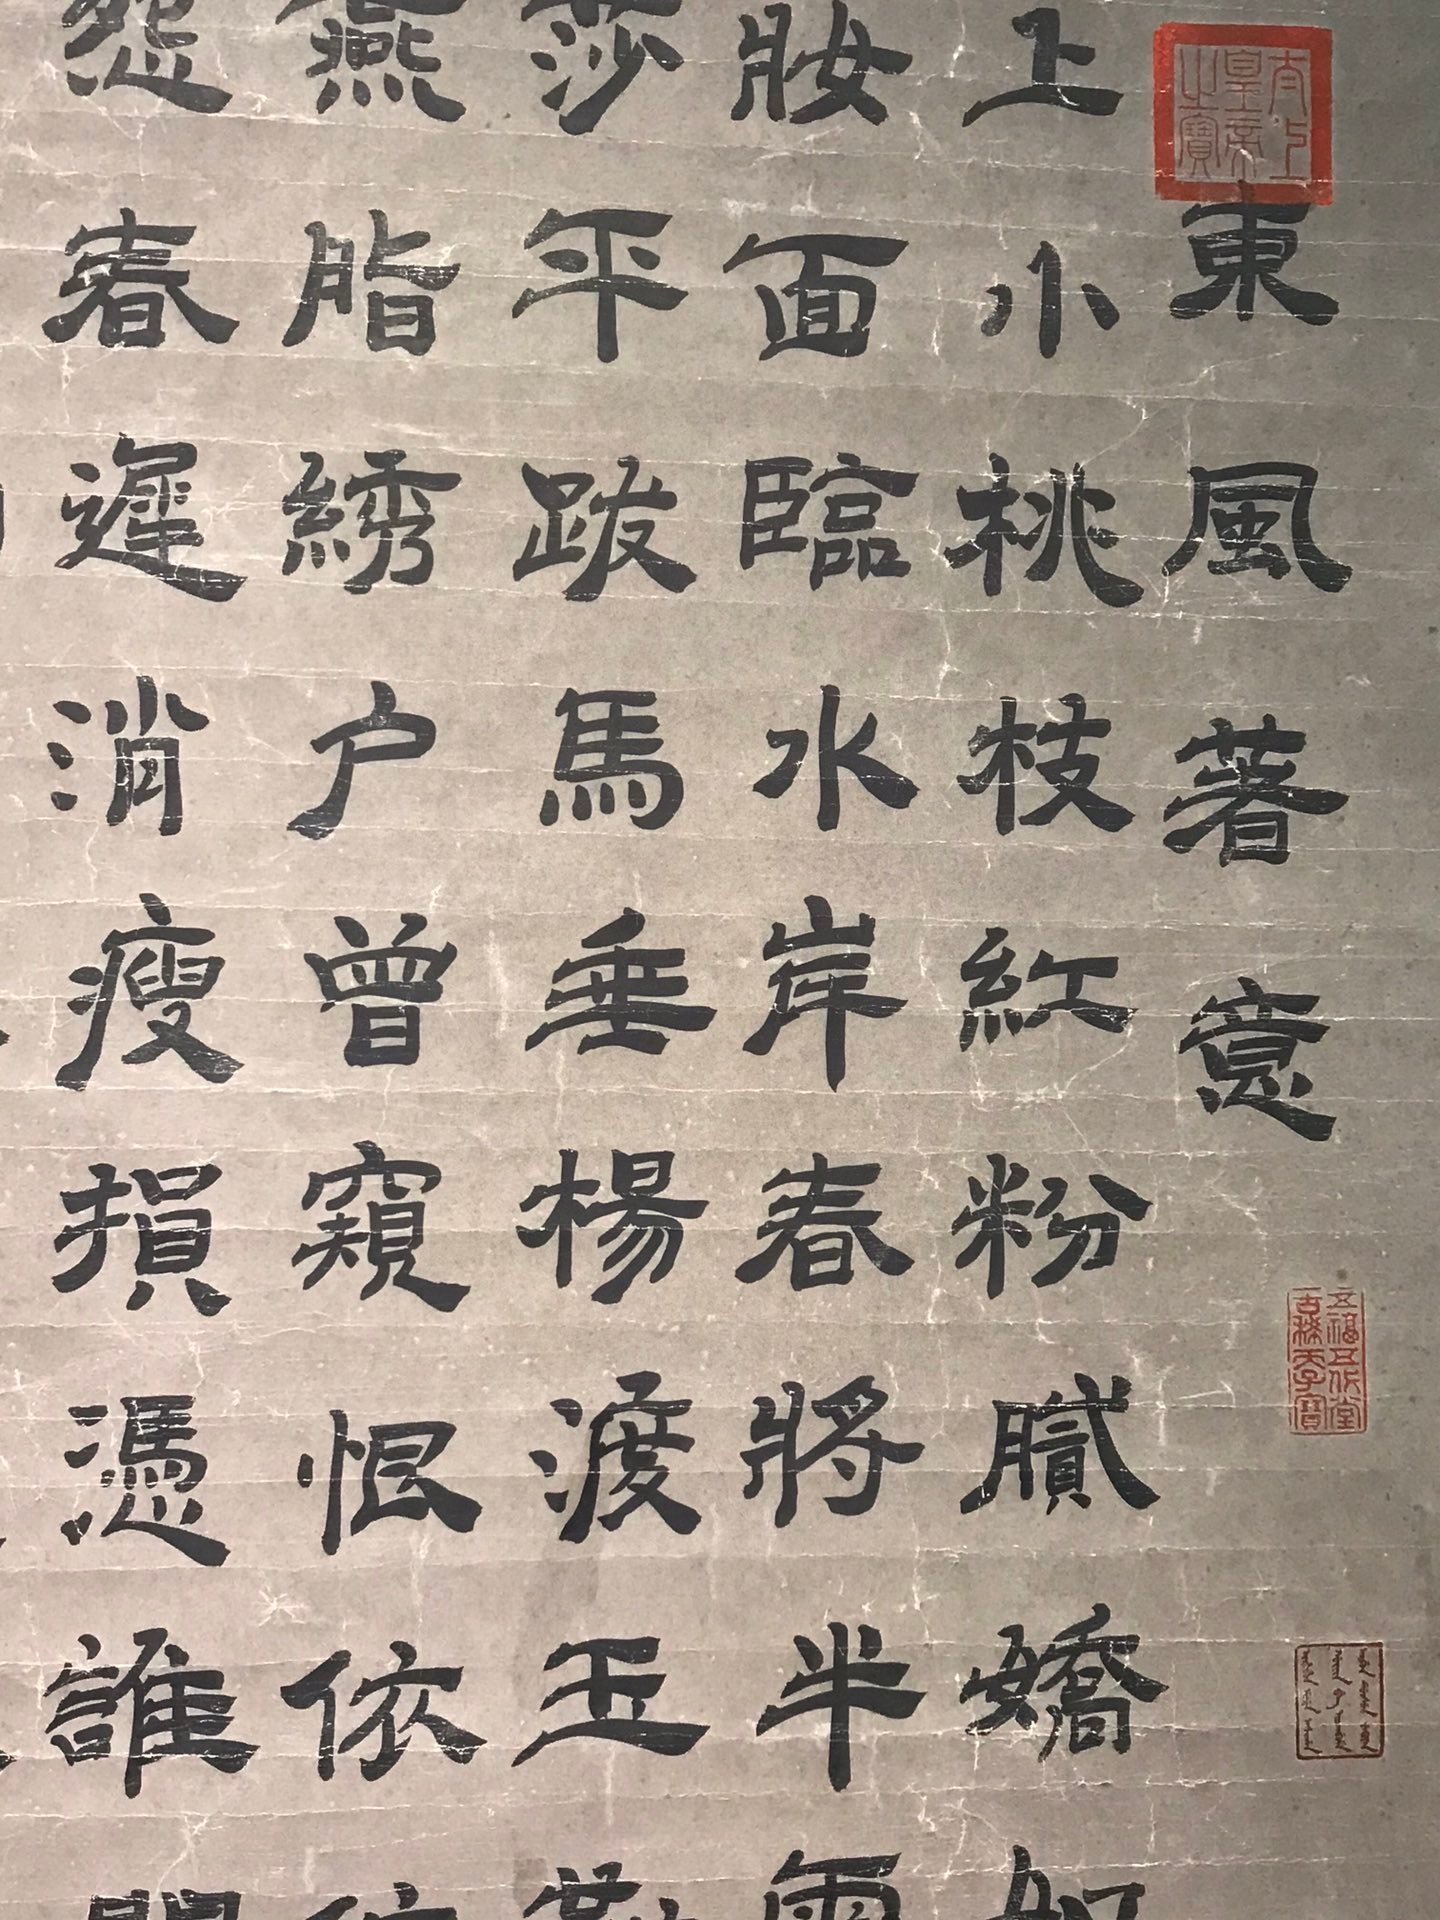 太上
皇帝
之寶
東風著意
上小桃枝紅粉膩嬌如
妝面臨水岸春將半
莎平跋馬垂楊渡玉勒
燕脂綉户曾窺恨依依
怨春遲消瘦損憑誰問
五福五代堂
古稀天子寶